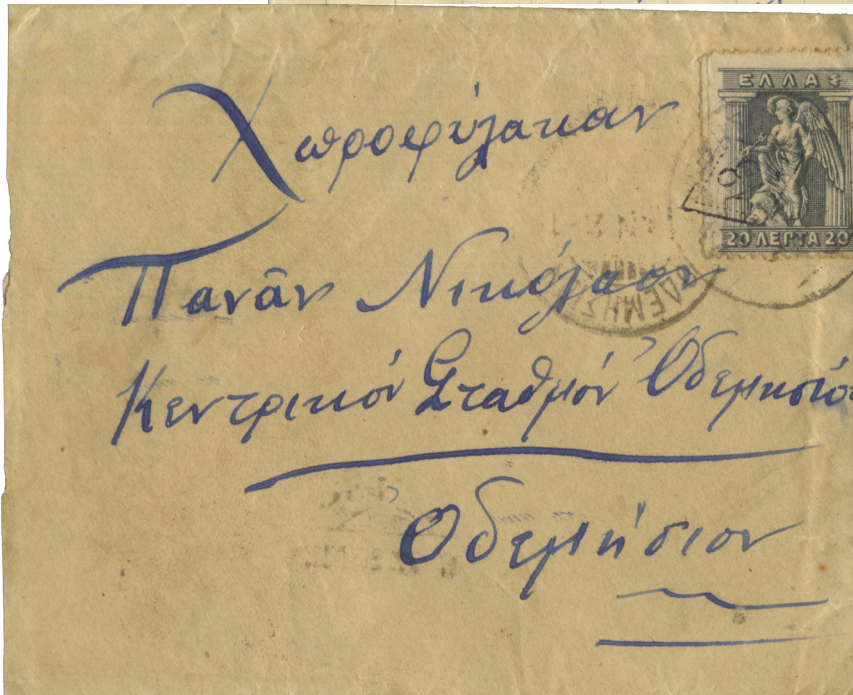 ΕΛΛΑΣ
20 ΛΕΠΤΑ 20
Χωροφύλακαν
Πανᾶν Νικόλαον
ΟΔΕΜΗΣΙ
Κεντρικόν Σταθμόν Ὀδεμησίο
Ὀδεμήσιον